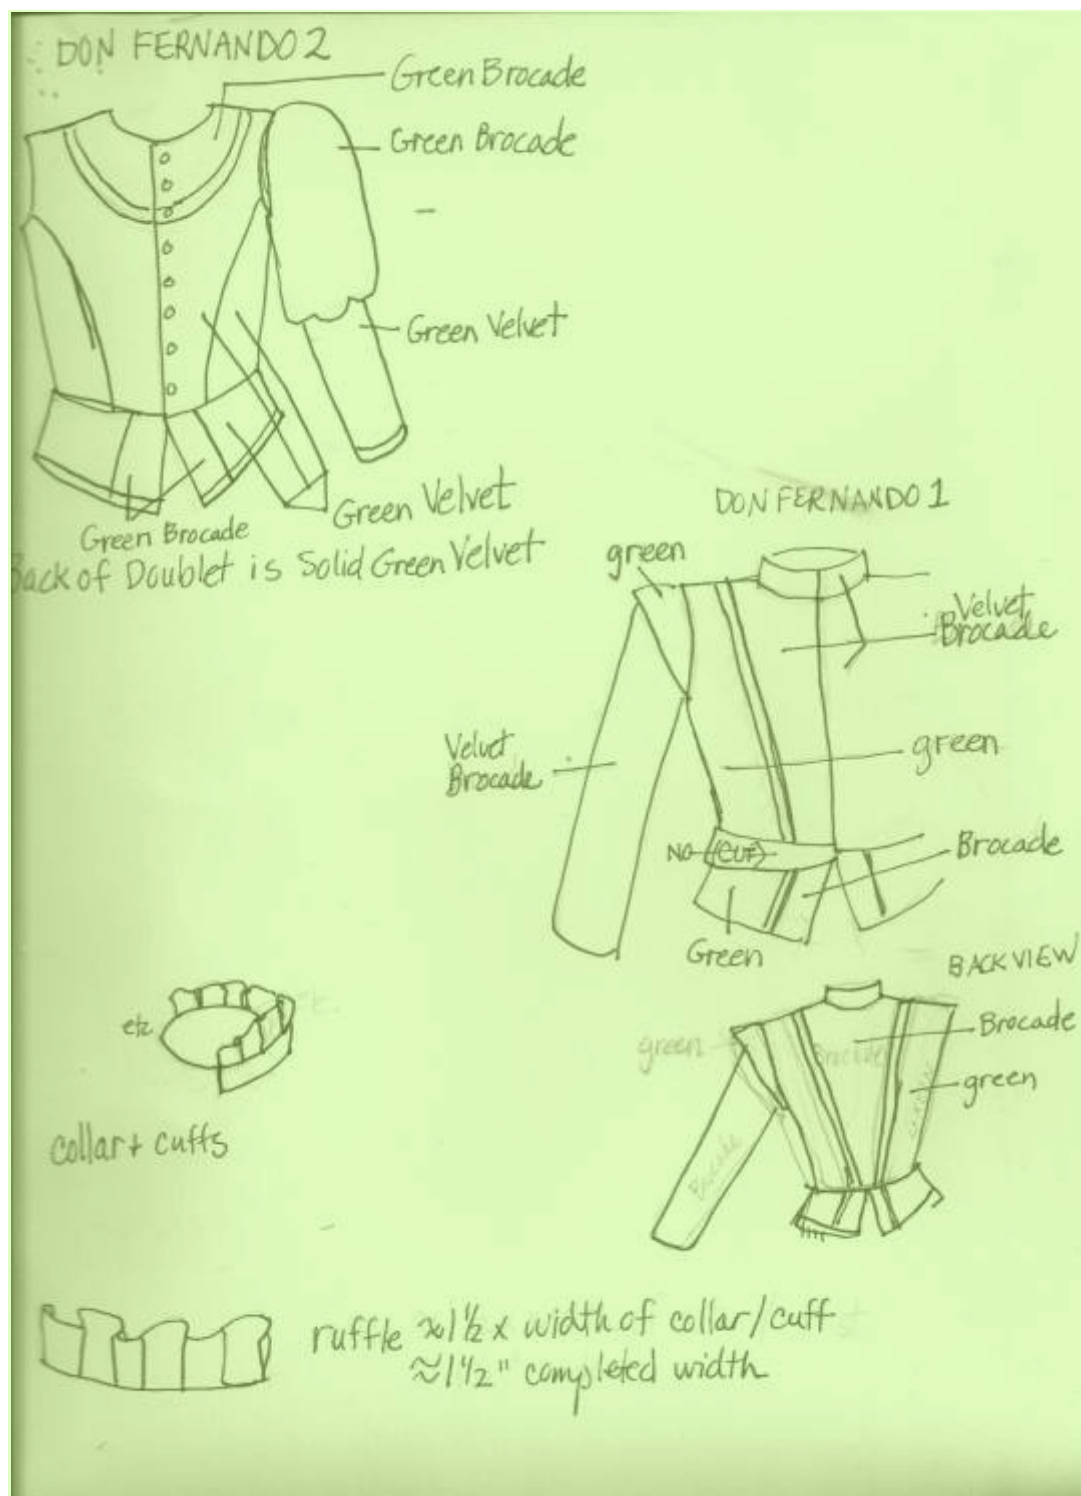 DON FERNANDO 2
Green Brocade
Green Brocade
Green Velvet
Green Velvet
Green Brocade
Back of Doublet is Solid Green Velvet
DON FERNANDO 1
green
Velvet
Brocade
Velvet
Brocade
green
NO (CUF)
Brocade
Green
BACK VIEW
Brocade
green
Brocade
green
Brocade
etc
collar + cuffs
ruffle ≈1 1/2 x width of collar/cuff
≈1 1/2" completed width